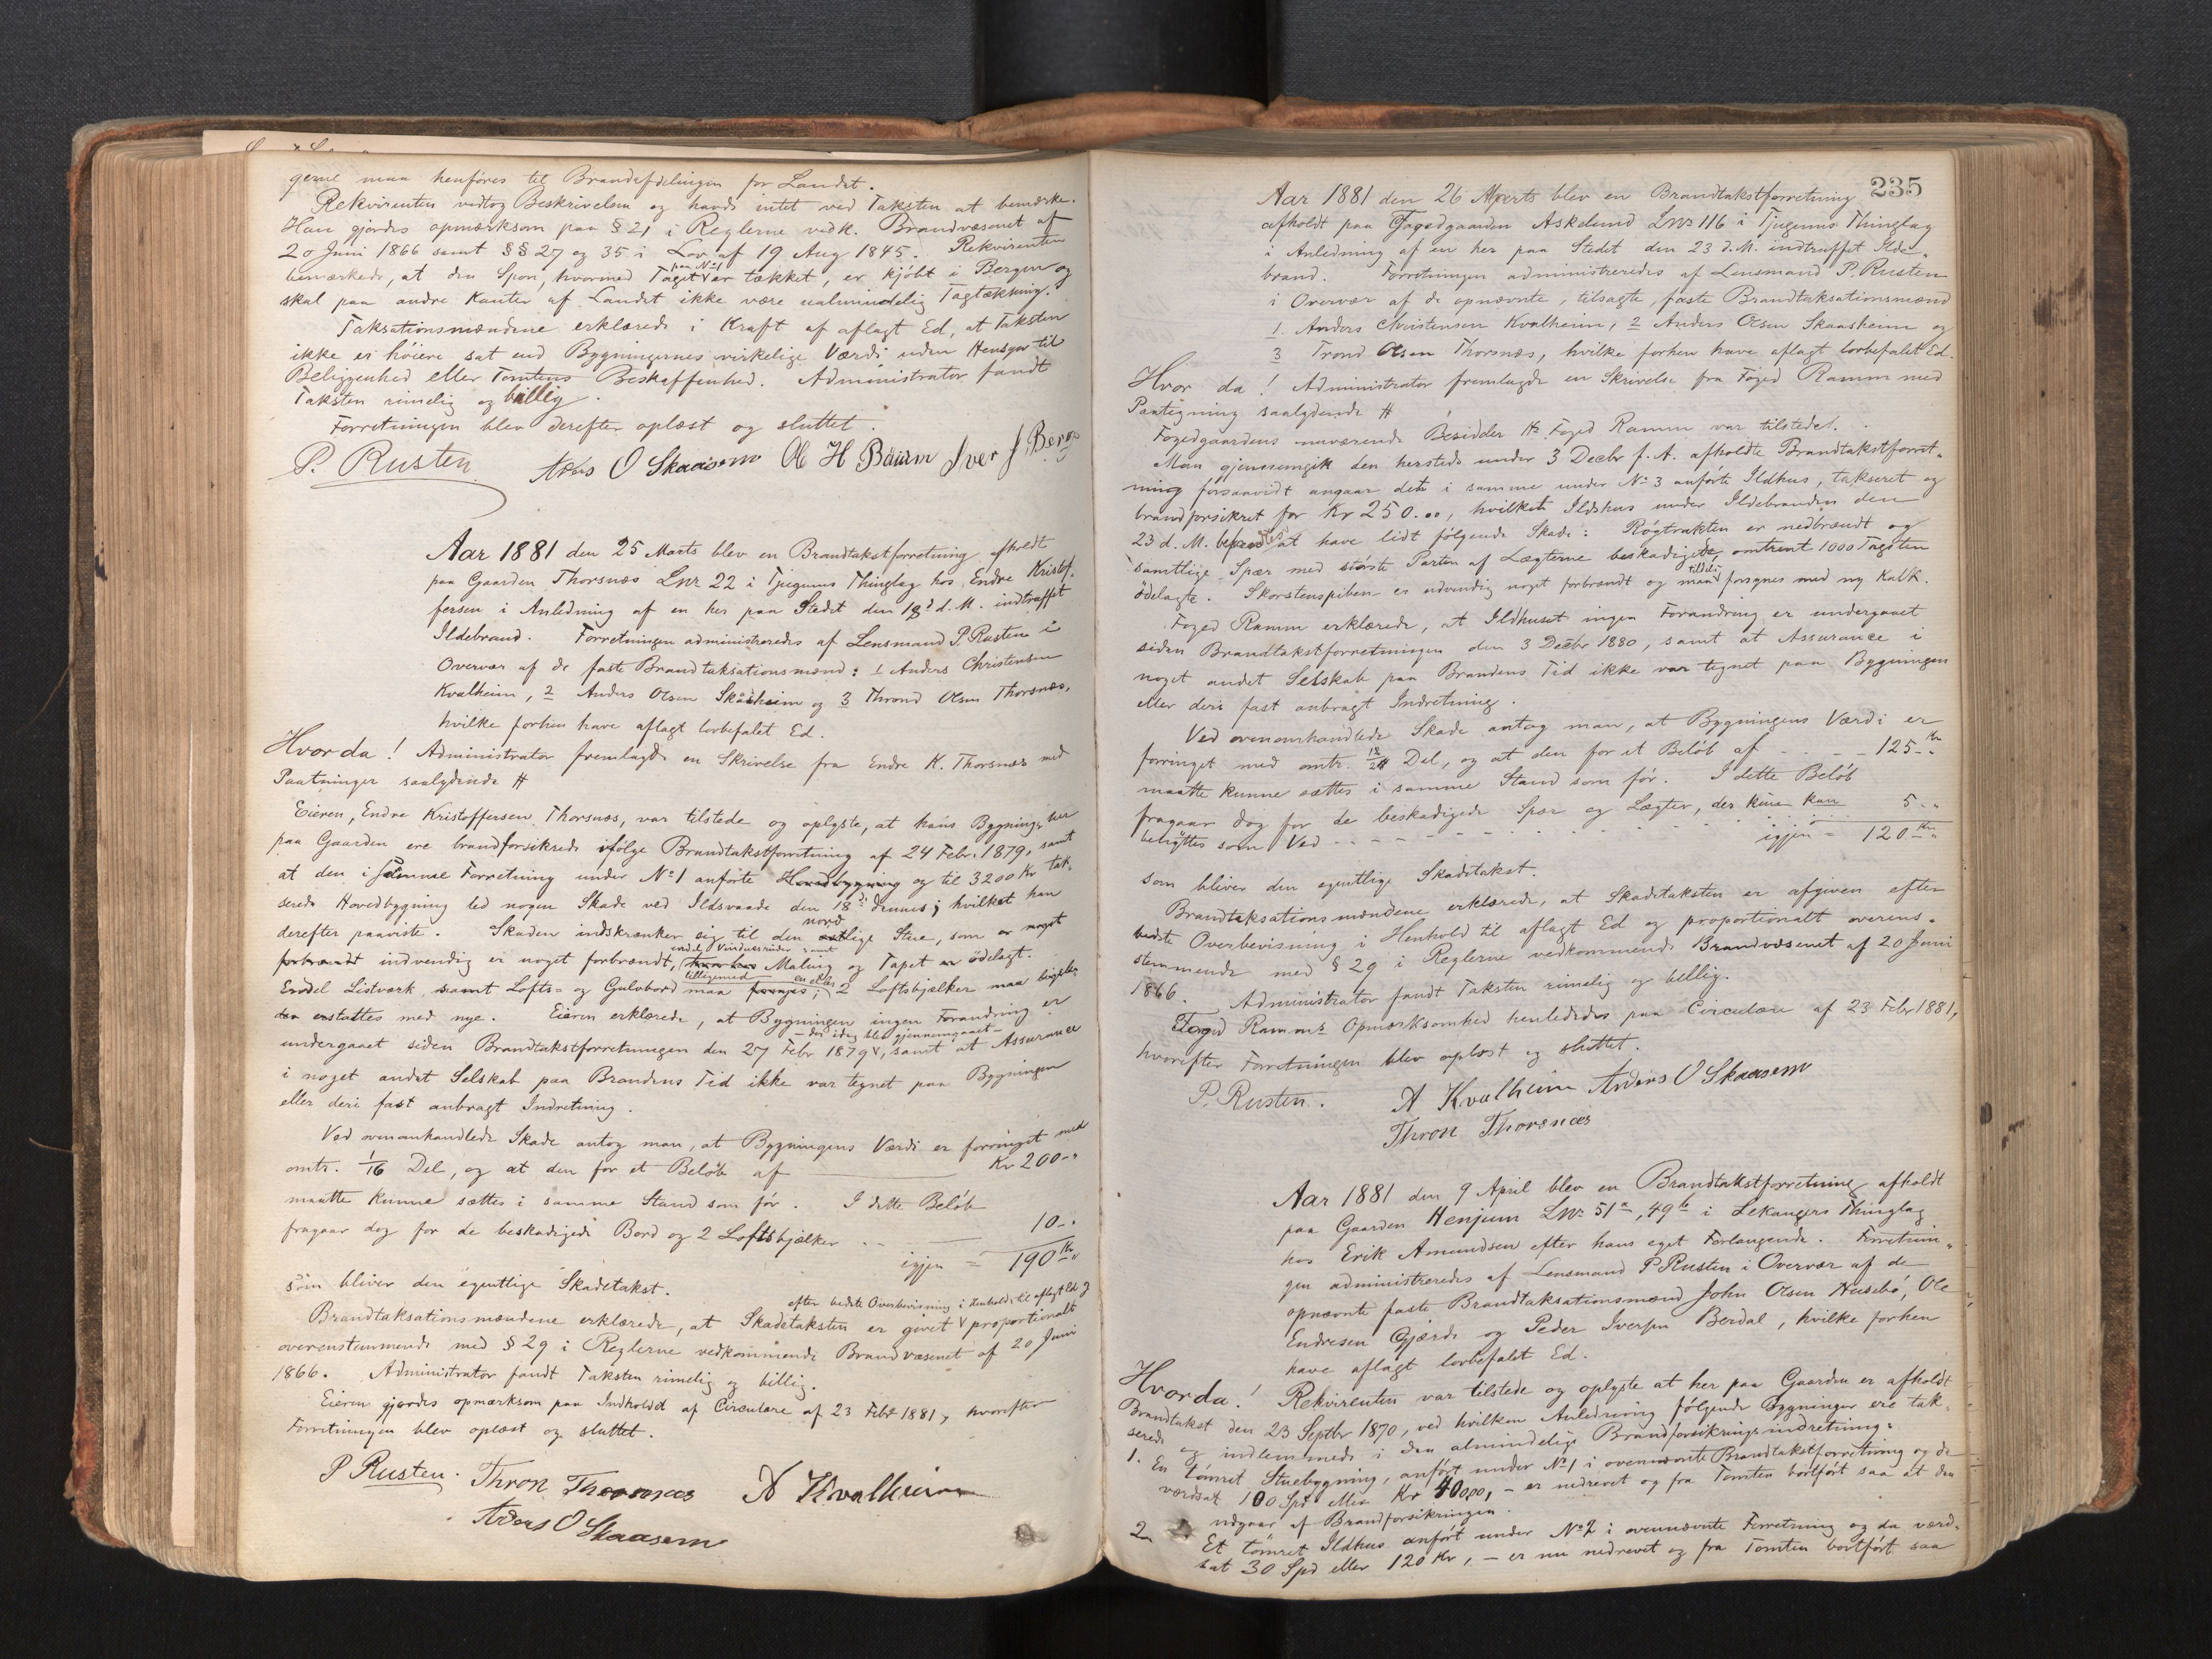 gerne maa henføres til Brandafdelingen for Landet.
Rekvirenten vedtog Beskrivelsen og havde intet ved Taksten at bemærke.
Han gjordes opmærksom paa § 21 i Reglerne vedk. Brandvæsenet af
20 Juni 1866 samt §§ 27 og 35 i Lov af 19 Aug 1845. Rekvirenten
bemærkede, at den Spon, hvormed Taget paa No 1 var tækket, er kjøbt i Bergen og
skal paa andre Kanter af Landet ikke være ualmindelig Tagtækning.
Taksationsmændene erklærede i Kraft af aflagt Ed, at Taksten
ikke er høiere sat end Bygningernes virkelige Værdi uden Hensyn til
Beliggenhed eller Tomtens Beskaffenhed. Administrator fandt
Taksten rimelig og billig.
Forretningen blev derefter oplæst og sluttet.
P. Rusten Anders O Skaasem Ole H Baurn Iver J Berge
Aar 1881 den 25 Marts blev en Brandtakstforretning afholdt
paa Gaarden Thorsnæs Lnr 22 i Tjugums Thinglag hos Endre Kristof-
fersen i Anledning af en her paa Stedet den 18d d. M. indtruffet
Ildebrand. Forretningen administreredes af Lensmand P. Rusten i
Overvær af de faste Brandtaksationsmænd: 1 Anders Christensen
Kvalheim, 2 Anders Olsen Skåsheim og 3 Thrond Olsen Thorsnæs,
hvilke forhen have aflagt lovbefalet Ed.
Hvor da! Administrator fremlagde en Skrivelse fra Endre K. Thorsnæs med
Paategninger saalydende #
Eieren, Endre Kristoffersen Thorsnæs, var tilstede og oplyste, at hans Bygninger her
paa Gaarden ere brandforsikrede ifølge Brandtakstforretning af 24 Febr. 1879, samt
at den i samme Forretning under No 1 anførte Hovedbygning og til 3200 Kr tak-
serede Hovedbygning led nogen Skade ved Ildsvaade den 18de dennes; hvilket han
derefter paaviste. Skaden indskrænker sig til den nordlige Stue, som er noget
forbrændt indvendig er noget forbrændt, endel Vinduesruder samt Maling og Tapet er ødelagt.
Endel Listværk, samt Lofts- og Gulvbord tilligemed en eller 2 Loftsbjælker maa
erstattes med nye. Eieren erklærede, at Bygningen ingen Forandring er
undergaaet siden Brandtakstforretningen den 27 Febr 1879 - der idag blev gjennemgaaet -, samt at Assurance
i noget andet Selskab paa Brandens Tid ikke var tegnet paa Bygningen
eller deri fast anbragt Indretning.
Ved ovenomhandlede Skade antog man, at Bygningens Værdi er forringet med
omtr. 1/16 Del, og at den for et Beløb af Kr 200 - "
maatte kunne sættes i samme Stand som før. I dette Beløb
fragaar dog for de beskadigede Bord og 2 Loftsbjælker - - 10 - "
igjen = 190 Kr "
som bliver den egentlige Skadetakst.
Brandtaksationsmændene erklærede, at Skadetaksten er givet efter bedste Overbevisning i Henhold til aflagt Ed og proportionalt
overenstemmende med § 29 i Reglerne vedkommende Brandvæsenet af 20 Juni
1866. Administrator fandt Taksten rimelig og billig.
Eieren gjordes opmærksom paa Indholdet af Circulære af 23 Febr 1881, hvorefter
Forretningen blev oplæst og sluttet.
P Rusten. Thron Thorsnæs A Kvalheim
Anders O Skaasem
235
Aar 1881 den 26 Marts blev en Brandtakstforretning
afholdt paa Fogedgaarden Askelund LNo 116 i Tjugums Thinglag
i Anledning af en her paa Stedet den 23 d. M. indtruffet Ilde-
brand. Forretningen administreredes af Lensmand P. Rusten
i Overvær af de opnævnte, tilsagte, faste Brandtaksationsmænd
1. Anders Christensen Kvalheim, 2 Anders Olsen Skaasheim og
3 Trond Olsen Thorsnæs, hvilke forhen have aflagt lovbefalet Ed.
Hvor da! Administrator fremlagde en Skrivelse fra Foged Ramm med
Paategning saalydende #
Fogedgaardens nuværende Besidder Hr. Foged Ramm var tilstede.
Man gjennemgik den hersteds under 3 Decbr f. A. afholdte Brandtakstforret-
ning forsaavidt angaar det i samme under No 3 anførte Ildhus, takseret og
brandforsikret for Kr 250.00, hvilket Ildhus under Ildebranden den
23 d. M. befandtes at have lidt følgende Skade: Røgtrakten er nedbrændt og
samtlige Spær med største Parten af Lægterne beskadigede, omtrent 1000 Tagsten
ødelagte. Skorstenspiben er udvendig noget forbrændt og maa tildels forsynes med ny Kalk.
Foged Ramm erklærede, at Ildhuset ingen Forandring er undergaaet
siden Brandtakstforretningen den 3 Decbr 1880, samt at Assurance i
noget andet Selskab paa Brandens Tid ikke var tegnet paa Bygningen
eller deri fast anbragt Indretning.
Ved ovenomhandlede Skade antog man, at Bygningens Værdi er
forringet med omtr. 12/24 Del, og at den for et Beløb af - - - - 125 Kr "
maatte kunne sættes i samme Stand som før. I dette Beløb
fragaar dog for de beskadigede Spær og Lægter, der kun kan
benyttes som Ved - - - - 5 - "
igjen = 120 Kr "
som bliver den egentlige Skadetakst.
Brandtaksationsmændene erklærede, at Skadetaksten er afgiven efter
bedste Overbevisning i Henhold til aflagt Ed og proportionalt overens-
stemmende med § 29 i Reglerne vedkommende Brandvæsenet af 20 Juni
1866. Administrator fandt Taksten rimelig og billig.
Foged Ramms Opmærksomhed henlededes paa Circulære af 23 Febr 1881,
hvorefter Forretningen blev oplæst og sluttet.
P. Rusten. A Kvalheim Anders O Skaasem
Thron Thorsnæs
Aar 1881 den 9 April blev en Brandtakstforretning afholdt
paa Gaarden Henjum LNo 51a, 49b i Lekangers Thinglag
hos Erik Amundsen efter hans eget Forlangende. Forretnin-
gen administreredes af Lensmand P Rusten i Overvær af de
opnævnte faste Brandtaksationsmænd John Olsen Husebø, Ole
Endresen Gjærde og Peder Iversen Berdal, hvilke forhen
have aflagt lovbefalet Ed.
Hvor da! Rekvirenten var tilstede og oplyste at her paa Gaarden er afholdt
Brandtakst den 23 Septbr 1870, ved hvilken Anledning følgende Bygninger ere tak-
serede og indlemmede i den almindelige Brandforsikringsindretning:
1. En tømret Stuebygning, anført under No 1 i ovennævnte Brandtakstforretning og da
værdsat 100 Spd eller Kr 400,00, - er nedrevet og fra Tomten bortført saa at den
udgaar af Brandforsikringen.
2. Et tømret Ildhus anført under No 2 i ovennævnte Forretning og da værd-
sat 30 Spd eller 120 Kr, - er nu nedrevet og fra Tomten bortført saa